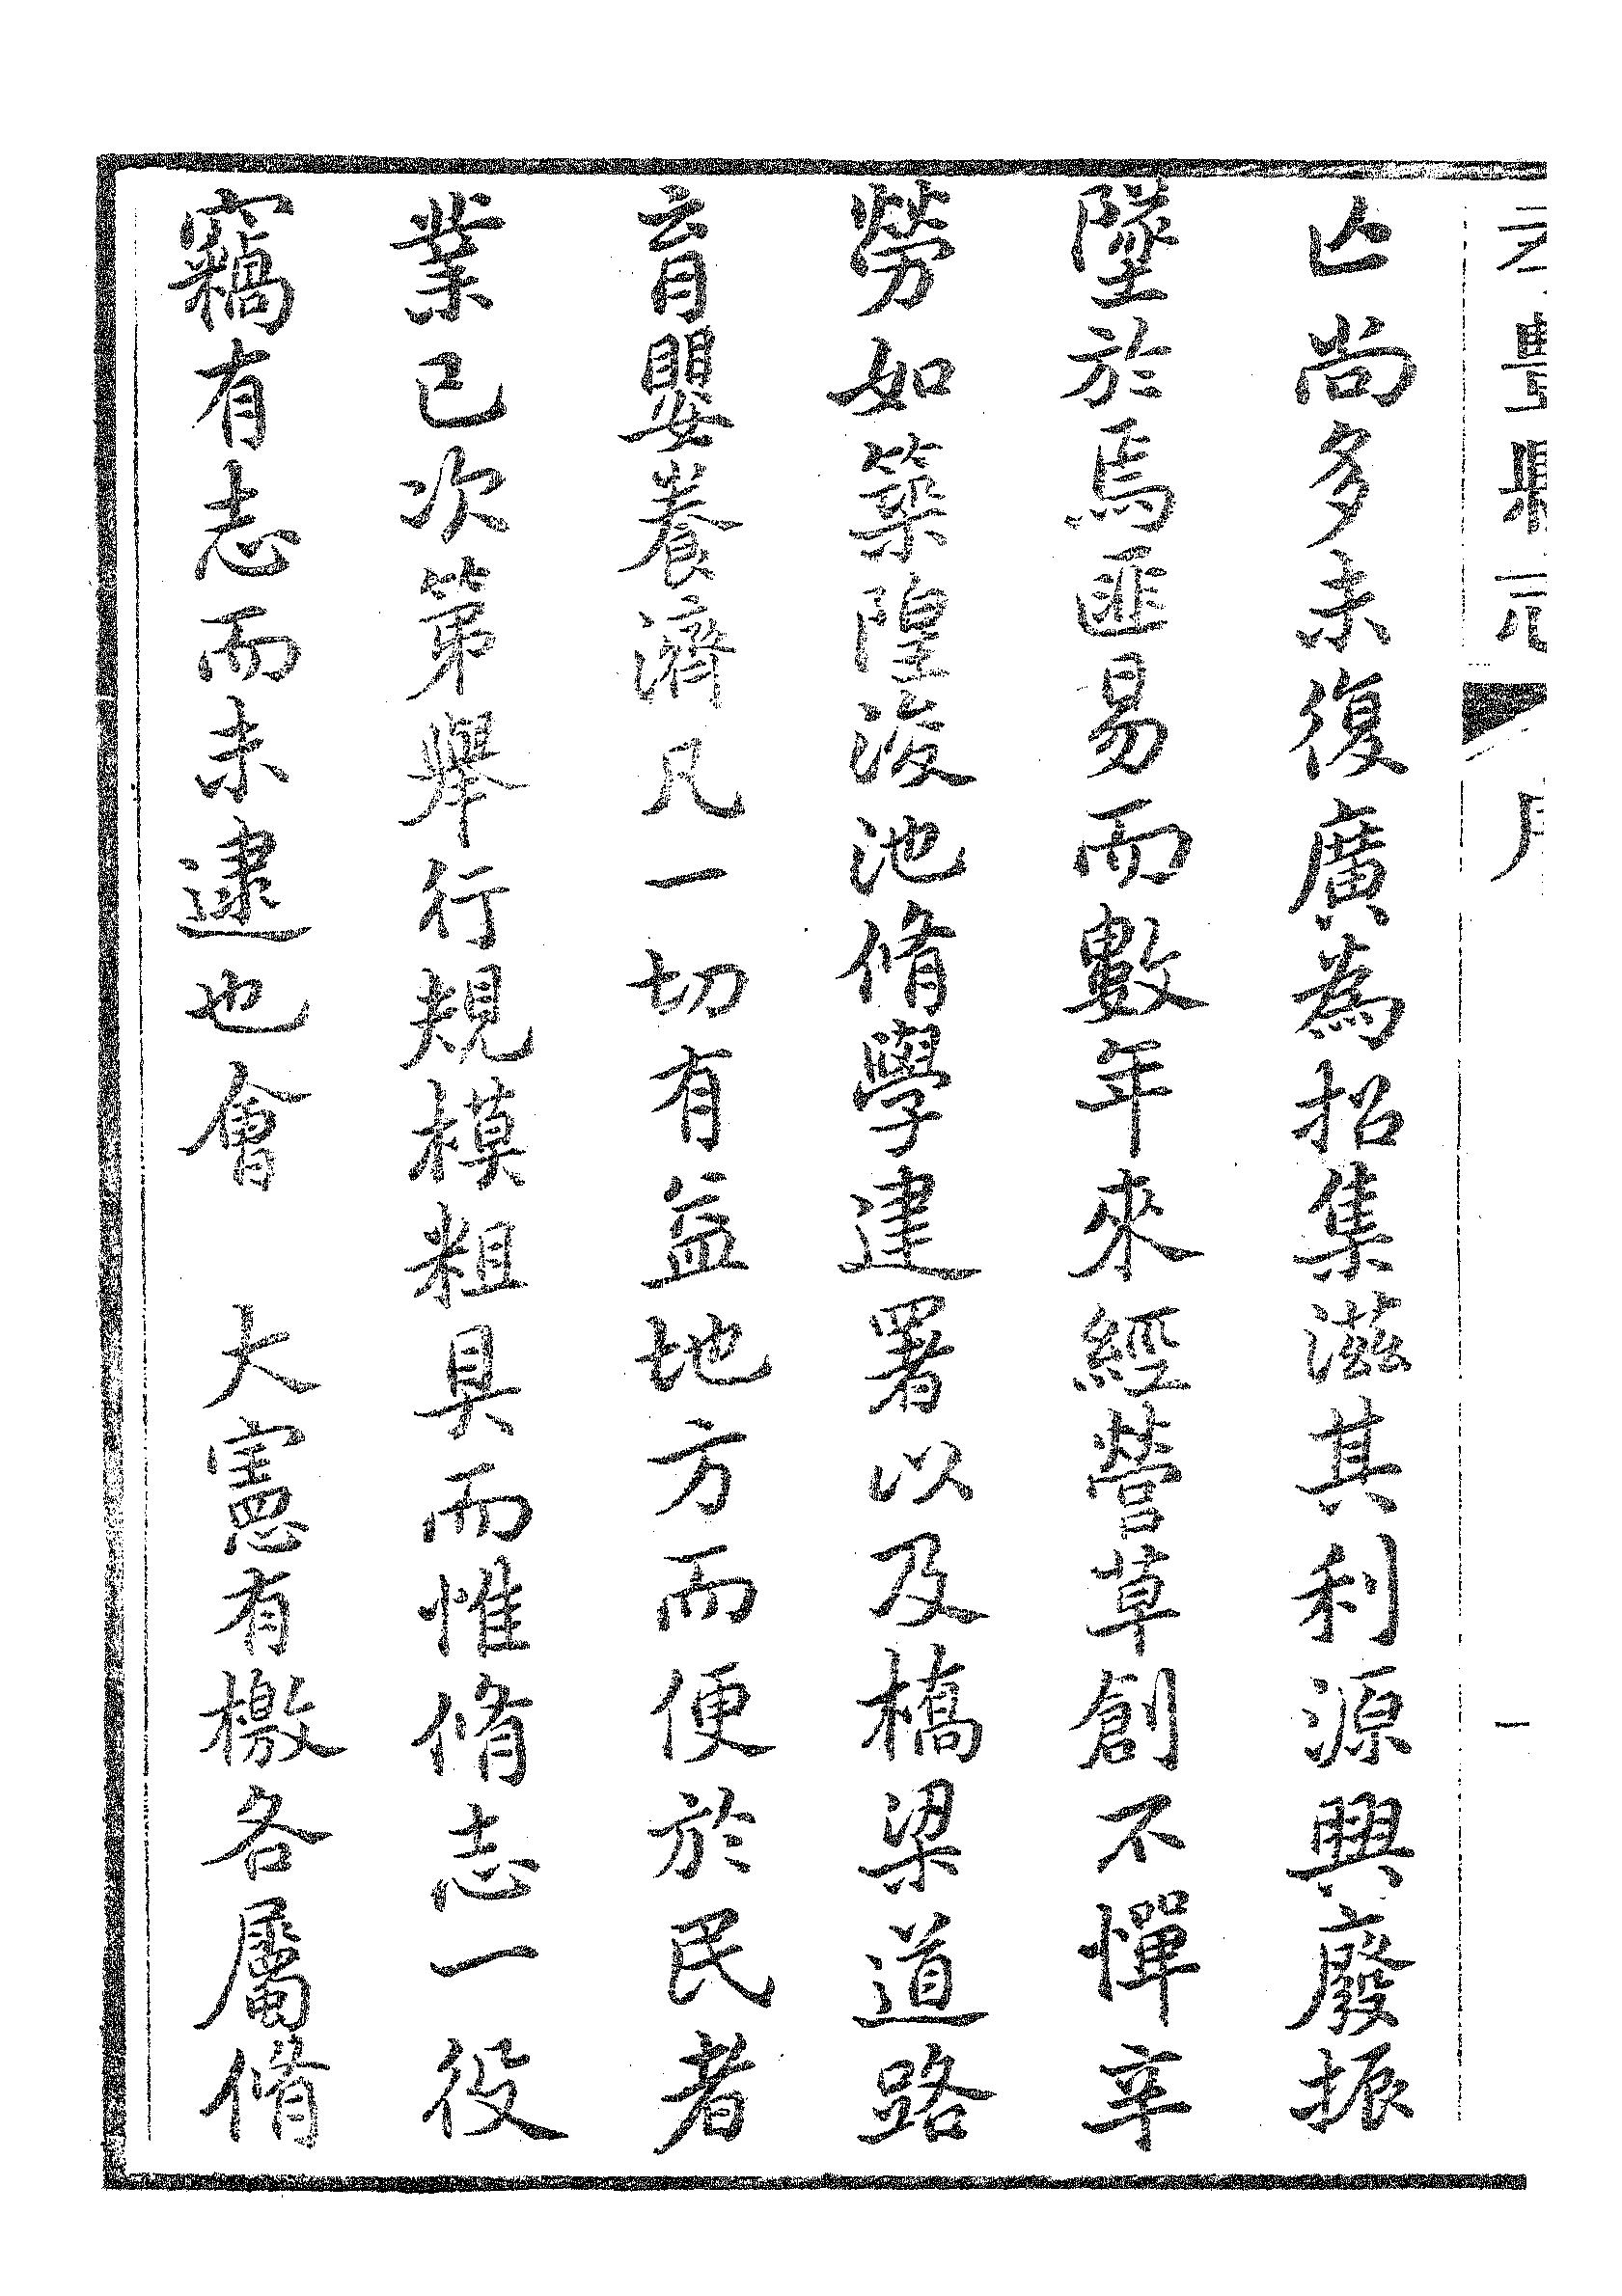 亾尚多未復廣為招集滋其利源興廢振
墜於焉匪易而數年來經營草創不憚辛
勞如築隍浚池脩學建署以及橋梁道路
育嬰養濟凡一切有益地方而便於民者
業已次第舉行規模粗具而惟脩志一役
竊有志而未逮也會　大憲有檄各屬脩